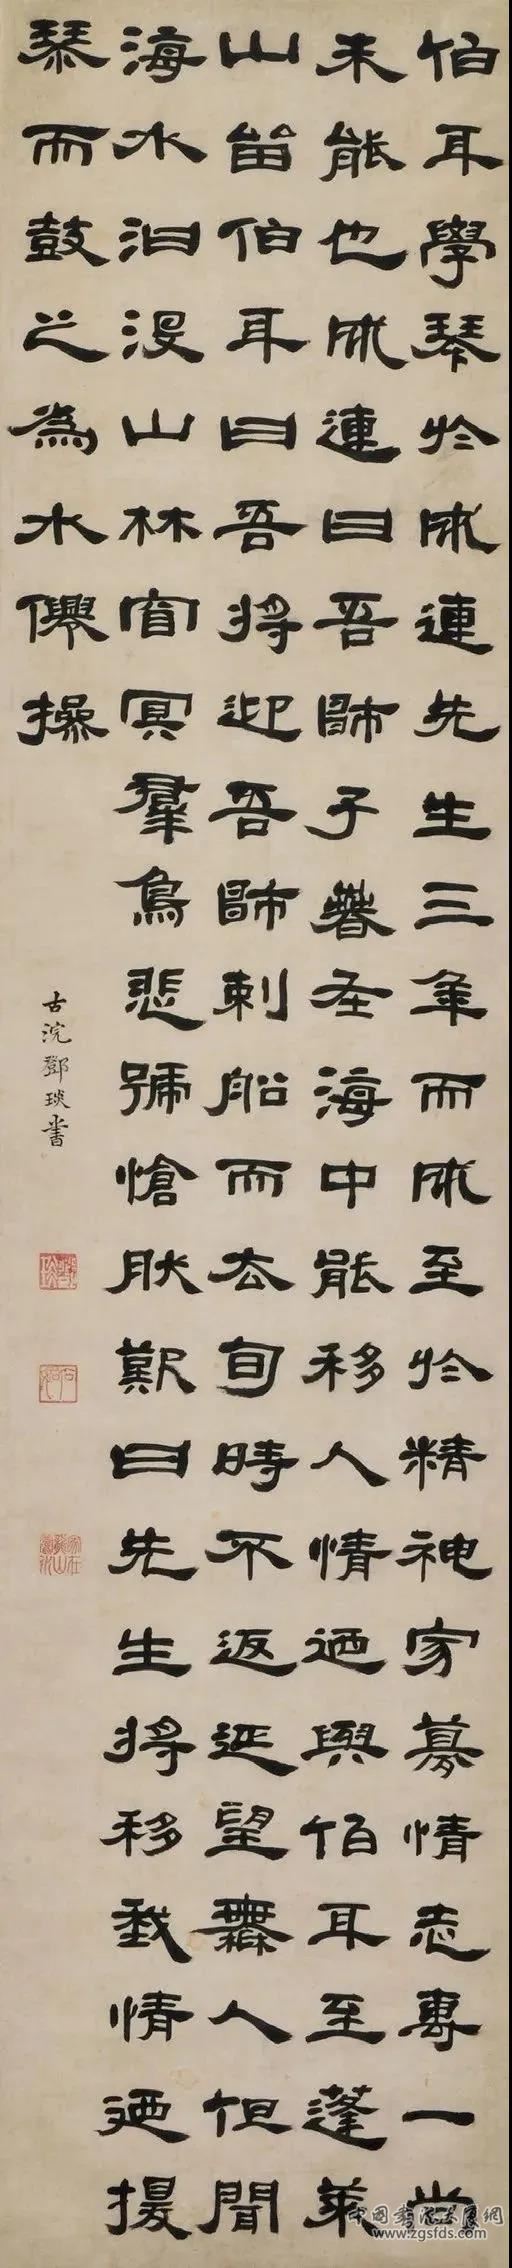 伯耳學琴於成連先生三年而成至於精神寂寞情志專一尚
未能也成連曰吾師子春在海中能移人情迺與伯耳至蓬萊
山留伯耳曰吾將迎吾師刺船而去旬時不返延望無人但聞
海水汩没山林窅冥羣鳥悲號愴肰歎曰先生將移我情迺援
琴而鼓之為水僊操
古浣鄧琰書
家在龍山鳳水
中国书法大展网
www.zgsfds.com